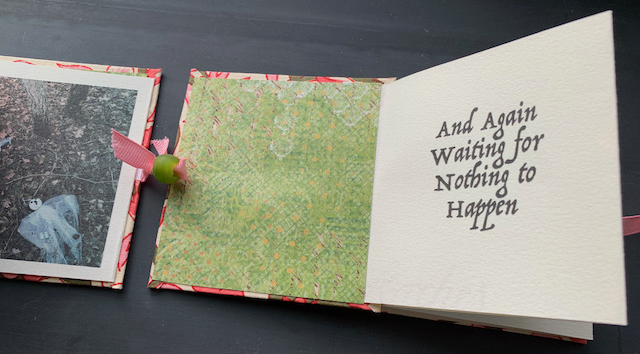 And Again
Waiting for
Nothing to
Happen